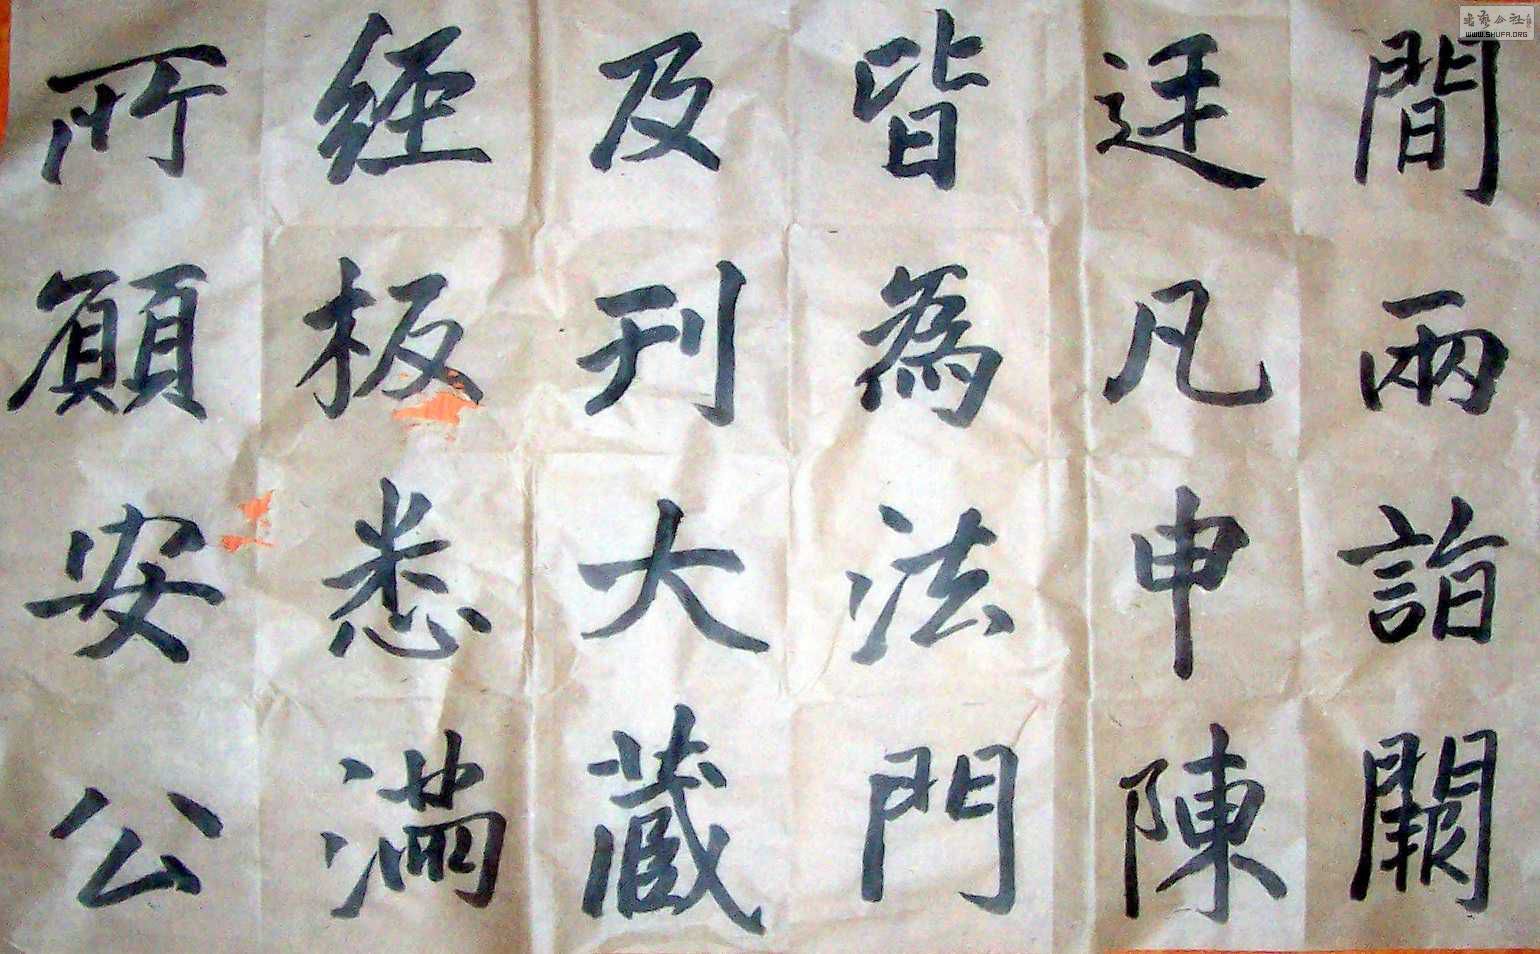 間兩詣闕
廷凡申陳
皆為法門
及刊大藏
經板悉滿
所願安公
書藝公社
WWW.SHUFA.ORG